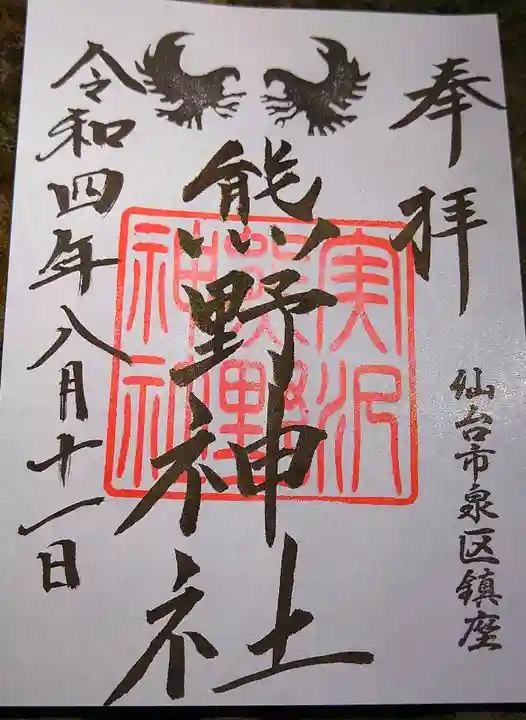 奉拝
仙台市泉区鎮座
熊野神社
実沢
熊野
神社
令和四年八月十一日